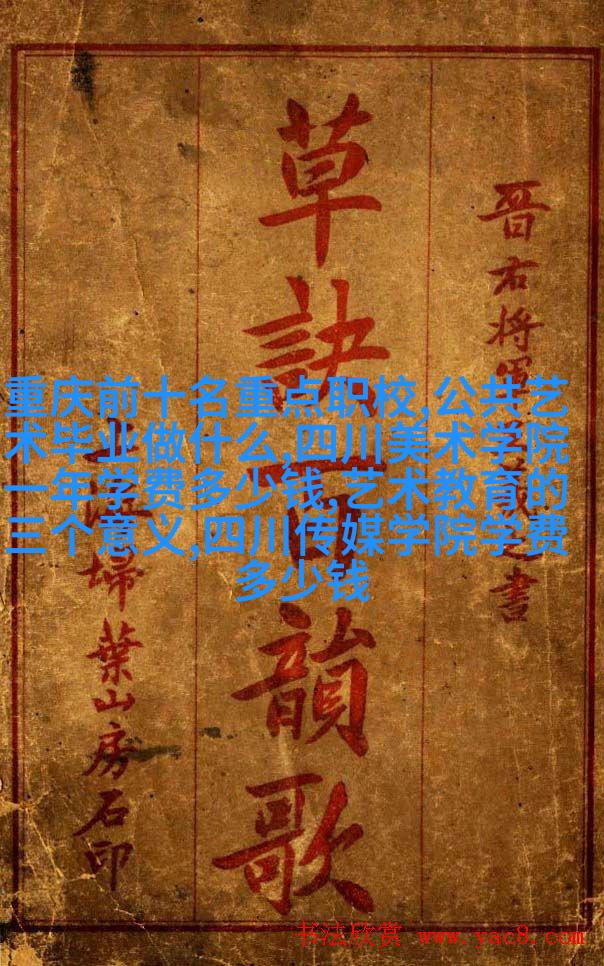 晋右将軍羲之書
草訣百韻歌
掃葉山房石印
重庆前十名重点职校,公共艺
术毕业做什么,四川美术学院
一年学费多少钱,艺术教育的
三个意义,四川传媒学院学费
多少钱
书法欣赏 www.yac8.com